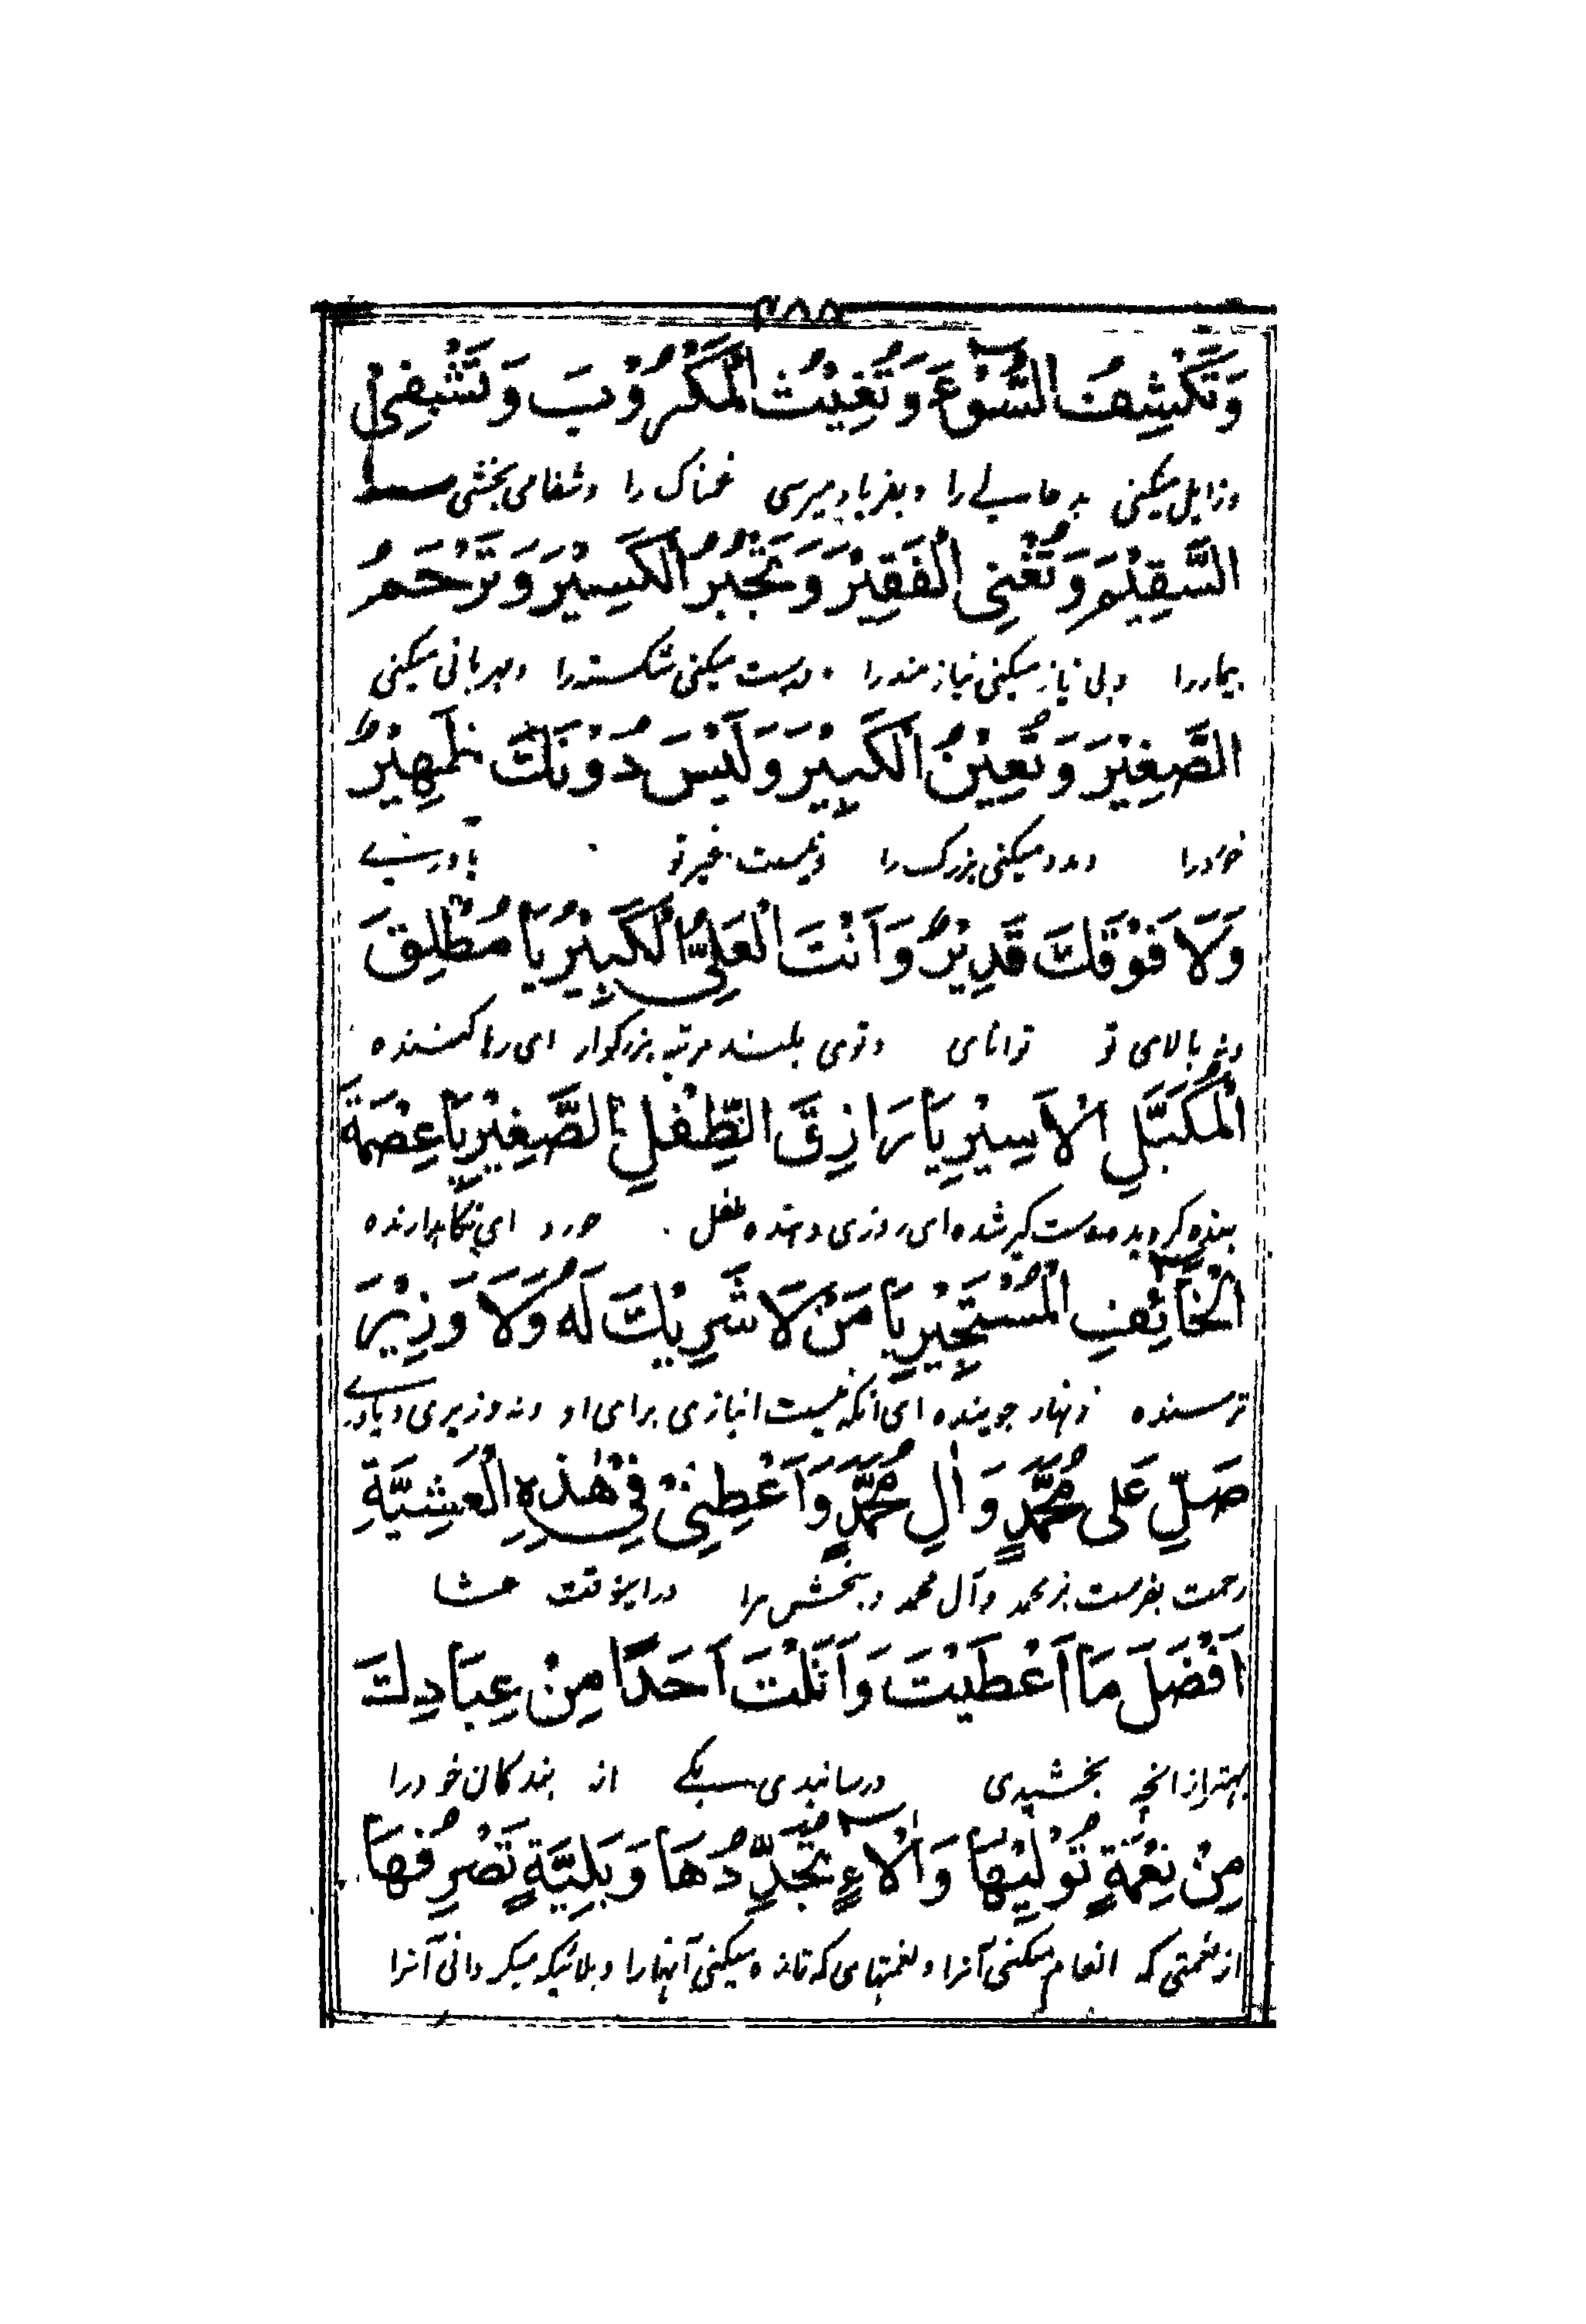 ۴۸۸
وَتَكْشِفُ السُّوْٓءَ وَتُغِيْثُ الْمَكْرُوْبَ وَتَشْفِى
وزایل میکنی بدحالی را وبفریاد میرسی غمناک را وشفا می بخشی
السَّقِيْمَ وَتُغْنِى الْفَقِيْرَ وَتَجْبُرُ الْكَسِيْرَ وَتَرْحَمُ
بیماررا وبی نیاز میکنی نیازمندرا ودرست میکنی شکسته را ومهربانی میکنی
الصَّغِيْرَ وَتُعِيْنُ الْكَبِيْرَ وَلَيْسَ دُوْنَكَ ظَهِيْرٌ
خوردرا ومدد میکنی بزرگ را ونیست غیرتو یاوری
وَلَا فَوْقَكَ قَدِيْرٌ وَاَنْتَ الْعَلِىُّ الْكَبِيْرُ يَا مُطْلِقَ
ونه بالای تو توانای وتوی بلند مرتبه بزرگوار ای رها کننده
الْمُكَبَّلِ الْاَسِيْرِ يَا رَازِقَ الطِّفْلِ الصَّغِيْرِ يَا عِصْمَةَ
بنده کرده شده ای روزی دهنده طفل خورد ای نگاهدارنده
الْخَآئِفِ الْمُسْتَجِيْرِ يَا مَنْ لَا شَرِيْكَ لَهُ وَلَا وَزِيْرَ
ترسنده زنهار جوینده ای آنکه نیست انبازی برای او ونه وزیری ویاوری
صَلِّ عَلٰى مُحَمَّدٍ وَاٰلِ مُحَمَّدٍ وَاَعْطِنِىْ فِىْ هٰذِهِ الْعَشِيَّةِ
رحمت بفرست برمحمد وآل محمد وبخشش مرا دراینوقت عشا
اَفْضَلَ مَا اَعْطَيْتَ وَاَنَلْتَ اَحَدًا مِنْ عِبَادِكَ
بهتراز انچه بخشیدی ورسانیدی بیکی از بندگان خودرا
مِنْ نِعْمَةٍ تُوْلِيْهَا وَاٰلَآءٍ تُجَدِّدُهَا وَبَلِيَّةٍ تَصْرِفُهَا
از نعمتی که انعام میکنی آنرا ونعمتهای که تازه میکنی آنهارا وبلائیکه میگردانی آنرا